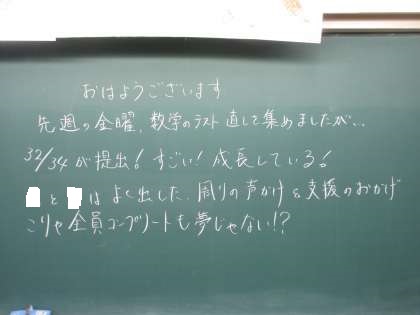 おはようございます
先週の金曜、数学のテスト直して集めましたが、..
32/34が提出!すごい!成長している!
と はよく出した。周りの声かけ&支援のおかげ
こりゃ全員コンプリートも夢じゃない!?